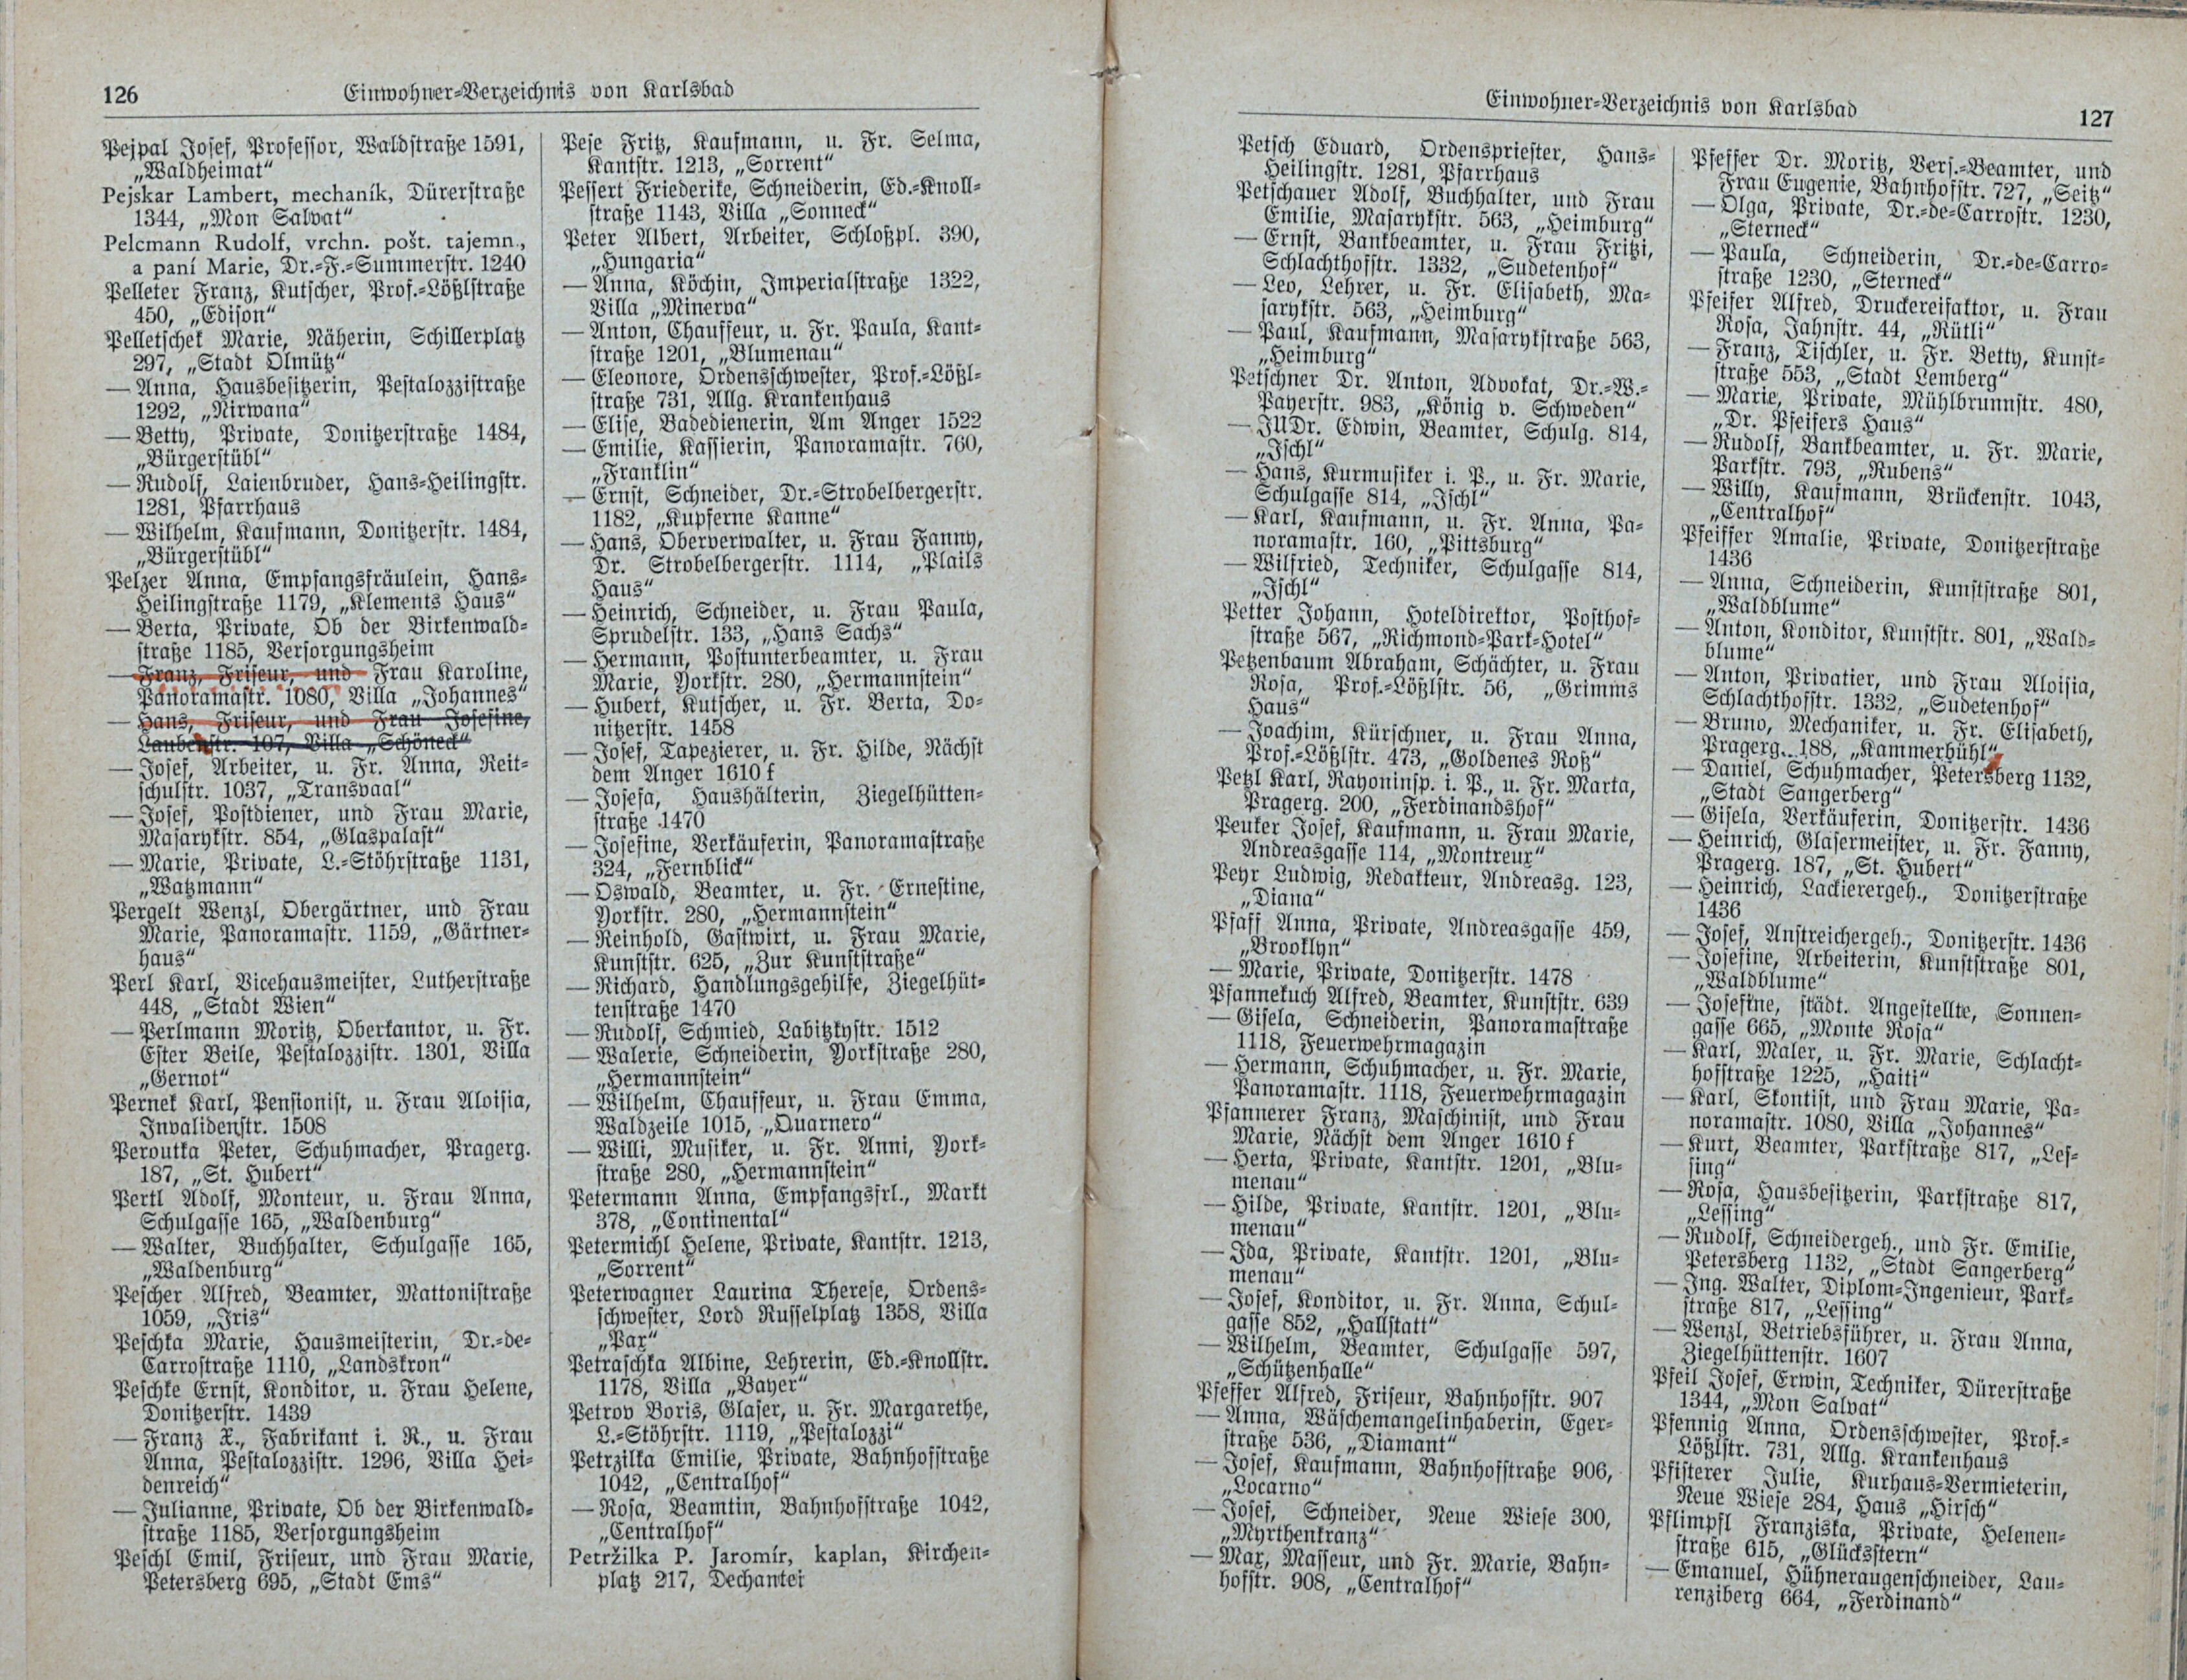 126
Einwohner-Verzeichnis von Karlsbad
Pejpal Josef, Professor, Waldstraße 1591,
„Waldheimat“
Pejskar Lambert, mechaník, Dürerstraße
1344, „Mon Salvat“
Pelcmann Rudolf, vrchn. pošt. tajemn.,
a paní Marie, Dr.-F.-Summerstr. 1240
Pelleter Franz, Kutscher, Prof.-Lößlstraße
450, „Edison“
Pelletschek Marie, Näherin, Schillerplatz
297, „Stadt Olmütz“
— Anna, Hausbesitzerin, Pestalozzistraße
1292, „Nirwana“
— Betty, Private, Donitzerstraße 1484,
„Bürgerstübl“
— Rudolf, Laienbruder, Hans-Heilingstr.
1281, Pfarrhaus
— Wilhelm, Kaufmann, Donitzerstr. 1484,
„Bürgerstübl“
Pelzer Anna, Empfangsfräulein, Hans-
Heilingstraße 1179, „Klements Haus“
— Berta, Private, Ob der Birkenwald-
straße 1185, Versorgungsheim
— Franz, Friseur, und Frau Karoline,
Panoramastr. 1080, Villa „Johannes“
— Hans, Friseur, und Frau Josefine,
Laubenstr. 107, Villa „Schöneck“
— Josef, Arbeiter, u. Fr. Anna, Reit-
schulstr. 1037, „Transvaal“
— Josef, Postdiener, und Frau Marie,
Masarykstr. 854, „Glaspalast“
— Marie, Private, L.-Stöhrstraße 1131,
„Watzmann“
Pergelt Wenzl, Obergärtner, und Frau
Marie, Panoramastr. 1159, „Gärtner-
haus“
Perl Karl, Vicehausmeister, Lutherstraße
448, „Stadt Wien“
— Perlmann Moritz, Oberkantor, u. Fr.
Ester Beile, Pestalozzistr. 1301, Villa
„Gernot“
Pernek Karl, Pensionist, u. Frau Aloisia,
Invalidenstr. 1508
Peroutka Peter, Schuhmacher, Pragerg.
187, „St. Hubert“
Pertl Adolf, Monteur, u. Frau Anna,
Schulgasse 165, „Waldenburg“
— Walter, Buchhalter, Schulgasse 165,
„Waldenburg“
Pescher Alfred, Beamter, Mattonistraße
1059, „Iris“
Peschka Marie, Hausmeisterin, Dr.-de-
Carrostraße 1110, „Landskron“
Peschke Ernst, Konditor, u. Frau Helene,
Donitzerstr. 1439
— Franz X., Fabrikant i. R., u. Frau
Anna, Pestalozzistr. 1296, Villa Hei-
denreich“
— Julianne, Private, Ob der Birkenwald-
straße 1185, Versorgungsheim
Peschl Emil, Friseur, und Frau Marie,
Petersberg 695, „Stadt Ems“
Pese Fritz, Kaufmann, u. Fr. Selma,
Kantstr. 1213, „Sorrent“
Pessert Friederike, Schneiderin, Ed.-Knoll-
straße 1143, Villa „Sonneck“
Peter Albert, Arbeiter, Schloßpl. 390,
„Hungaria“
— Anna, Köchin, Imperialstraße 1322,
Villa „Minerva“
— Anton, Chauffeur, u. Fr. Paula, Kant-
straße 1201, „Blumenau“
— Eleonore, Ordensschwester, Prof.-Lößl-
straße 731, Allg. Krankenhaus
— Elise, Badedienerin, Am Anger 1522
— Emilie, Kassierin, Panoramastr. 760,
„Franklin“
— Ernst, Schneider, Dr.-Strobelbergerstr.
1182, „Kupferne Kanne“
— Hans, Oberverwalter, u. Frau Fanny,
Dr. Strobelbergerstr. 1114, „Plails
Haus“
— Heinrich, Schneider, u. Frau Paula,
Sprudelstr. 133, „Hans Sachs“
— Hermann, Postunterbeamter, u. Frau
Marie, Yorkstr. 280, „Hermannstein“
— Hubert, Kutscher, u. Fr. Berta, Do-
nitzerstr. 1458
— Josef, Tapezierer, u. Fr. Hilde, Nächst
dem Anger 1610 f
— Josefa, Haushälterin, Ziegelhütten-
straße 1470
— Josefine, Verkäuferin, Panoramastraße
324, „Fernblick“
— Oswald, Beamter, u. Fr. Ernestine,
Yorkstr. 280, „Hermannstein“
— Reinhold, Gastwirt, u. Frau Marie,
Kunststr. 625, „Zur Kunststraße“
— Richard, Handlungsgehilfe, Ziegelhüt-
tenstraße 1470
— Rudolf, Schmied, Labitzkystr. 1512
— Walerie, Schneiderin, Yorkstraße 280,
„Hermannstein“
— Wilhelm, Chauffeur, u. Frau Emma,
Waldzeile 1015, „Quarnero“
— Willi, Musiker, u. Fr. Anni, York-
straße 280, „Hermannstein“
Petermann Anna, Empfangsfrl., Markt
378, „Continental“
Petermichl Helene, Private, Kantstr. 1213,
„Sorrent“
Peterwagner Laurina Therese, Ordens-
schwester, Lord Russelplatz 1358, Villa
„Pax“
Petraschka Albine, Lehrerin, Ed.-Knollstr.
1178, Villa „Bayer“
Petrov Boris, Glaser, u. Fr. Margarethe,
L.-Stöhrstr. 1119, „Pestalozzi“
Petrzilka Emilie, Private, Bahnhofstraße
1042, „Centralhof“
— Rosa, Beamtin, Bahnhofstraße 1042,
„Centralhof“
Petržilka P. Jaromír, kaplan, Kirchen-
platz 217, Dechantei
Einwohner-Verzeichnis von Karlsbad
127
Petsch Eduard, Ordenspriester, Hans-
Heilingstr. 1281, Pfarrhaus
Petschauer Adolf, Buchhalter, und Frau
Emilie, Masarykstr. 563, „Heimburg“
— Ernst, Bankbeamter, u. Frau Fritzi,
Schlachthofstr. 1332, „Sudetenhof“
— Leo, Lehrer, u. Fr. Elisabeth, Ma-
sarykstr. 563, „Heimburg“
— Paul, Kaufmann, Masarykstraße 563,
„Heimburg“
Petschner Dr. Anton, Advokat, Dr.-W.-
Payerstr. 983, „König v. Schweden“
— JUDr. Edwin, Beamter, Schulg. 814,
„Ischl“
— Hans, Kurmusiker i. P., u. Fr. Marie,
Schulgasse 814, „Ischl“
— Karl, Kaufmann, u. Fr. Anna, Pa-
noramastr. 160, „Pittsburg“
— Wilfried, Techniker, Schulgasse 814,
„Ischl“
Petter Johann, Hoteldirektor, Posthof-
straße 567, „Richmond-Park-Hotel“
Petzenbaum Abraham, Schächter, u. Frau
Rosa, Prof.-Lößlstr. 56, „Grimms
Haus“
— Joachim, Kürschner, u. Frau Anna,
Prof.-Lößlstr. 473, „Goldenes Roß“
Petzl Karl, Rayoninsp. i. P., u. Fr. Marta,
Pragerg. 200, „Ferdinandshof“
Peuker Josef, Kaufmann, u. Frau Marie,
Andreasgasse 114, „Montreux“
Peyr Ludwig, Redakteur, Andreasg. 123,
„Diana“
Pfaff Anna, Private, Andreasgasse 459,
„Brooklyn“
— Marie, Private, Donitzerstr. 1478
Pfannekuch Alfred, Beamter, Kunststr. 639
— Gisela, Schneiderin, Panoramastraße
1118, Feuerwehrmagazin
— Hermann, Schuhmacher, u. Fr. Marie,
Panoramastr. 1118, Feuerwehrmagazin
Pfannerer Franz, Maschinist, und Frau
Marie, Nächst dem Anger 1610 f
— Herta, Private, Kantstr. 1201, „Blu-
menau“
— Hilde, Private, Kantstr. 1201, „Blu-
menau“
— Ida, Private, Kantstr. 1201, „Blu-
menau“
— Josef, Konditor, u. Fr. Anna, Schul-
gasse 852, „Hallstatt“
— Wilhelm, Beamter, Schulgasse 597,
„Schützenhalle“
Pfeffer Alfred, Friseur, Bahnhofstr. 907
— Anna, Wäschemangelinhaberin, Eger-
straße 536, „Diamant“
— Josef, Kaufmann, Bahnhofstraße 906,
„Locarno“
— Josef, Schneider, Neue Wiese 300,
„Myrthenkranz“
— Max, Masseur, und Fr. Marie, Bahn-
hofstr. 908, „Centralhof“
Pfeffer Dr. Moritz, Vers.-Beamter, und
Frau Eugenie, Bahnhofstr. 727, „Seitz“
— Olga, Private, Dr.-de-Carrostr. 1230,
„Sterneck“
— Paula, Schneiderin, Dr.-de-Carro-
straße 1230, „Sterneck“
Pfeifer Alfred, Druckereifaktor, u. Frau
Rosa, Jahnstr. 44, „Rütli“
— Franz, Tischler, u. Fr. Betty, Kunst-
straße 553, „Stadt Lemberg“
— Marie, Private, Mühlbrunnstr. 480,
„Dr. Pfeifers Haus“
— Rudolf, Bankbeamter, u. Fr. Marie,
Parkstr. 793, „Rubens“
— Willy, Kaufmann, Brückenstr. 1043,
„Centralhof“
Pfeiffer Amalie, Private, Donitzerstraße
1436
— Anna, Schneiderin, Kunststraße 801,
„Waldblume“
— Anton, Konditor, Kunststr. 801, „Wald-
blume“
— Anton, Privatier, und Frau Aloisia,
Schlachthofstr. 1332, „Sudetenhof“
— Bruno, Mechaniker, u. Fr. Elisabeth,
Pragerg. 188, „Kammerbühl“
— Daniel, Schuhmacher, Petersberg 1132,
„Stadt Sangerberg“
— Gisela, Verkäuferin, Donitzerstr. 1436
— Heinrich, Glasermeister, u. Fr. Fanny,
Pragerg. 187, „St. Hubert“
— Heinrich, Lackierergeh., Donitzerstraße
1436
— Josef, Anstreichergeh., Donitzerstr. 1436
— Josefine, Arbeiterin, Kunststraße 801,
„Waldblume“
— Josefine, städt. Angestellte, Sonnen-
gasse 665, „Monte Rosa“
— Karl, Maler, u. Fr. Marie, Schlacht-
hofstraße 1225, „Haiti“
— Karl, Skontist, und Frau Marie, Pa-
noramastr. 1080, Villa „Johannes“
— Kurt, Beamter, Parkstraße 817, „Les-
sing“
— Rosa, Hausbesitzerin, Parkstraße 817,
„Lessing“
— Rudolf, Schneidergeh., und Fr. Emilie,
Petersberg 1132, „Stadt Sangerberg“
— Ing. Walter, Diplom-Ingenieur, Park-
straße 817, „Lessing“
— Wenzl, Betriebsführer, u. Frau Anna,
Ziegelhüttenstr. 1607
Pfeil Josef, Erwin, Techniker, Dürerstraße
1344, „Mon Salvat“
Pfennig Anna, Ordensschwester, Prof.-
Lößlstr. 731, Allg. Krankenhaus
Pfisterer Julie, Kurhaus-Vermieterin,
Neue Wiese 284, Haus „Hirsch“
Pflimpfl Franziska, Private, Helenen-
straße 615, „Glücksstern“
— Emanuel, Hühneraugenschneider, Lau-
renziberg 664, „Ferdinand“